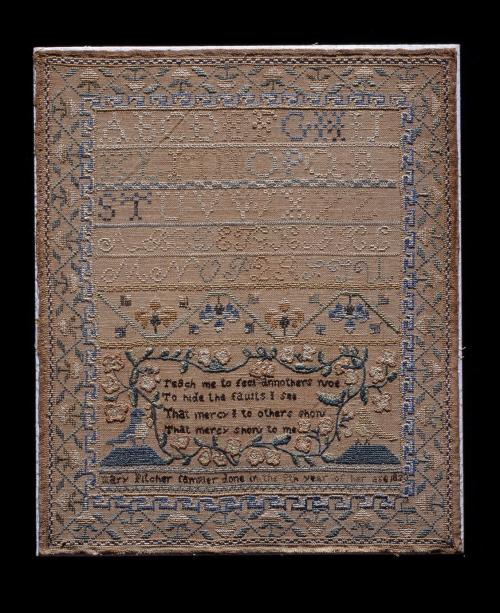 A B C D E F G H I J
K L M N O P Q R
S T U V W X Y Z
M N O P Q S T U
Teach me to feel annothers woe
To hide the faults I see
That mercy I to others show
That mercy show to me
Mary Pilcher sampler done in the year of her age